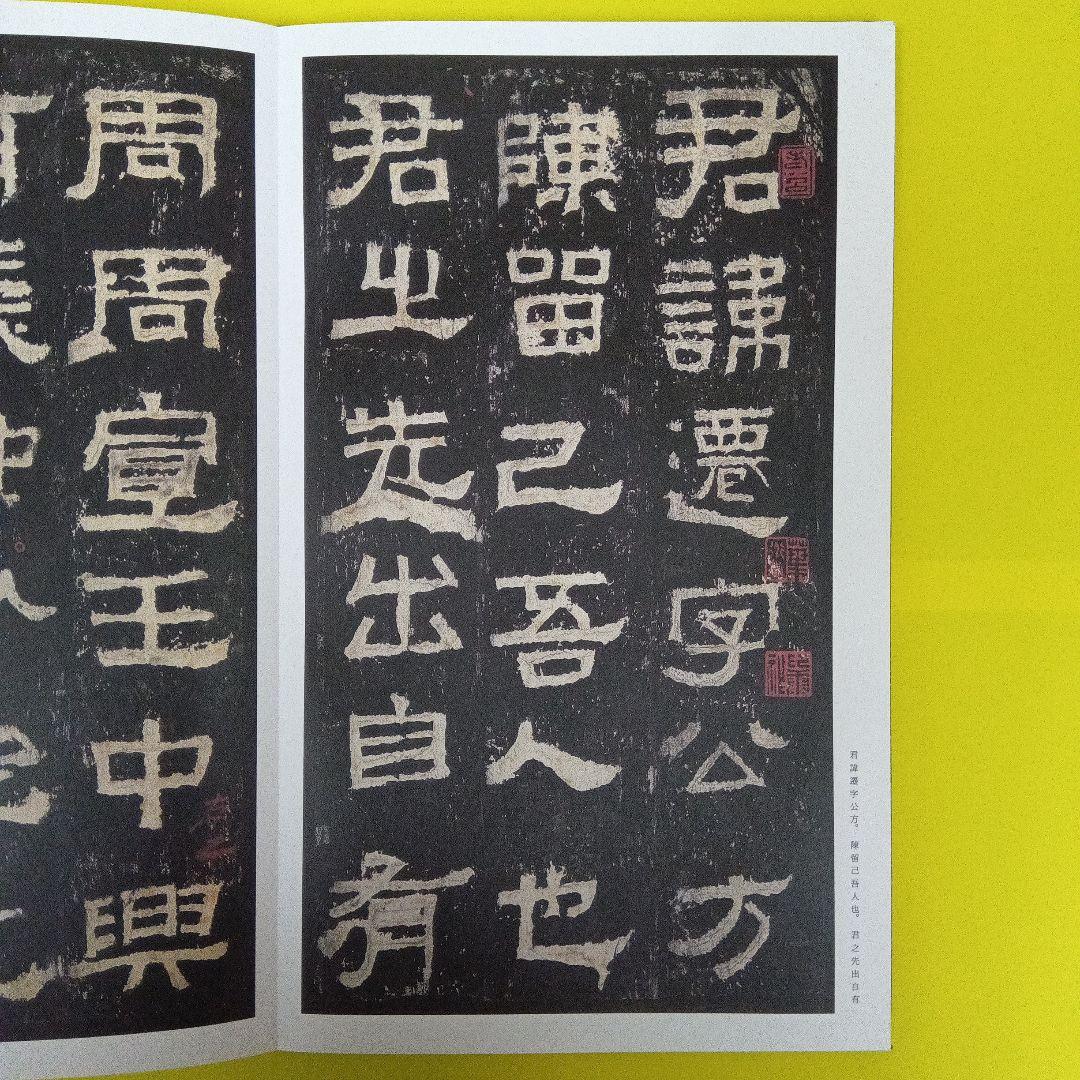 君諱遷字公方
陳留己吾人也
君之先出自有
君諱遷字公方。陳留己吾人也。君之先出自有
周周宣王中興